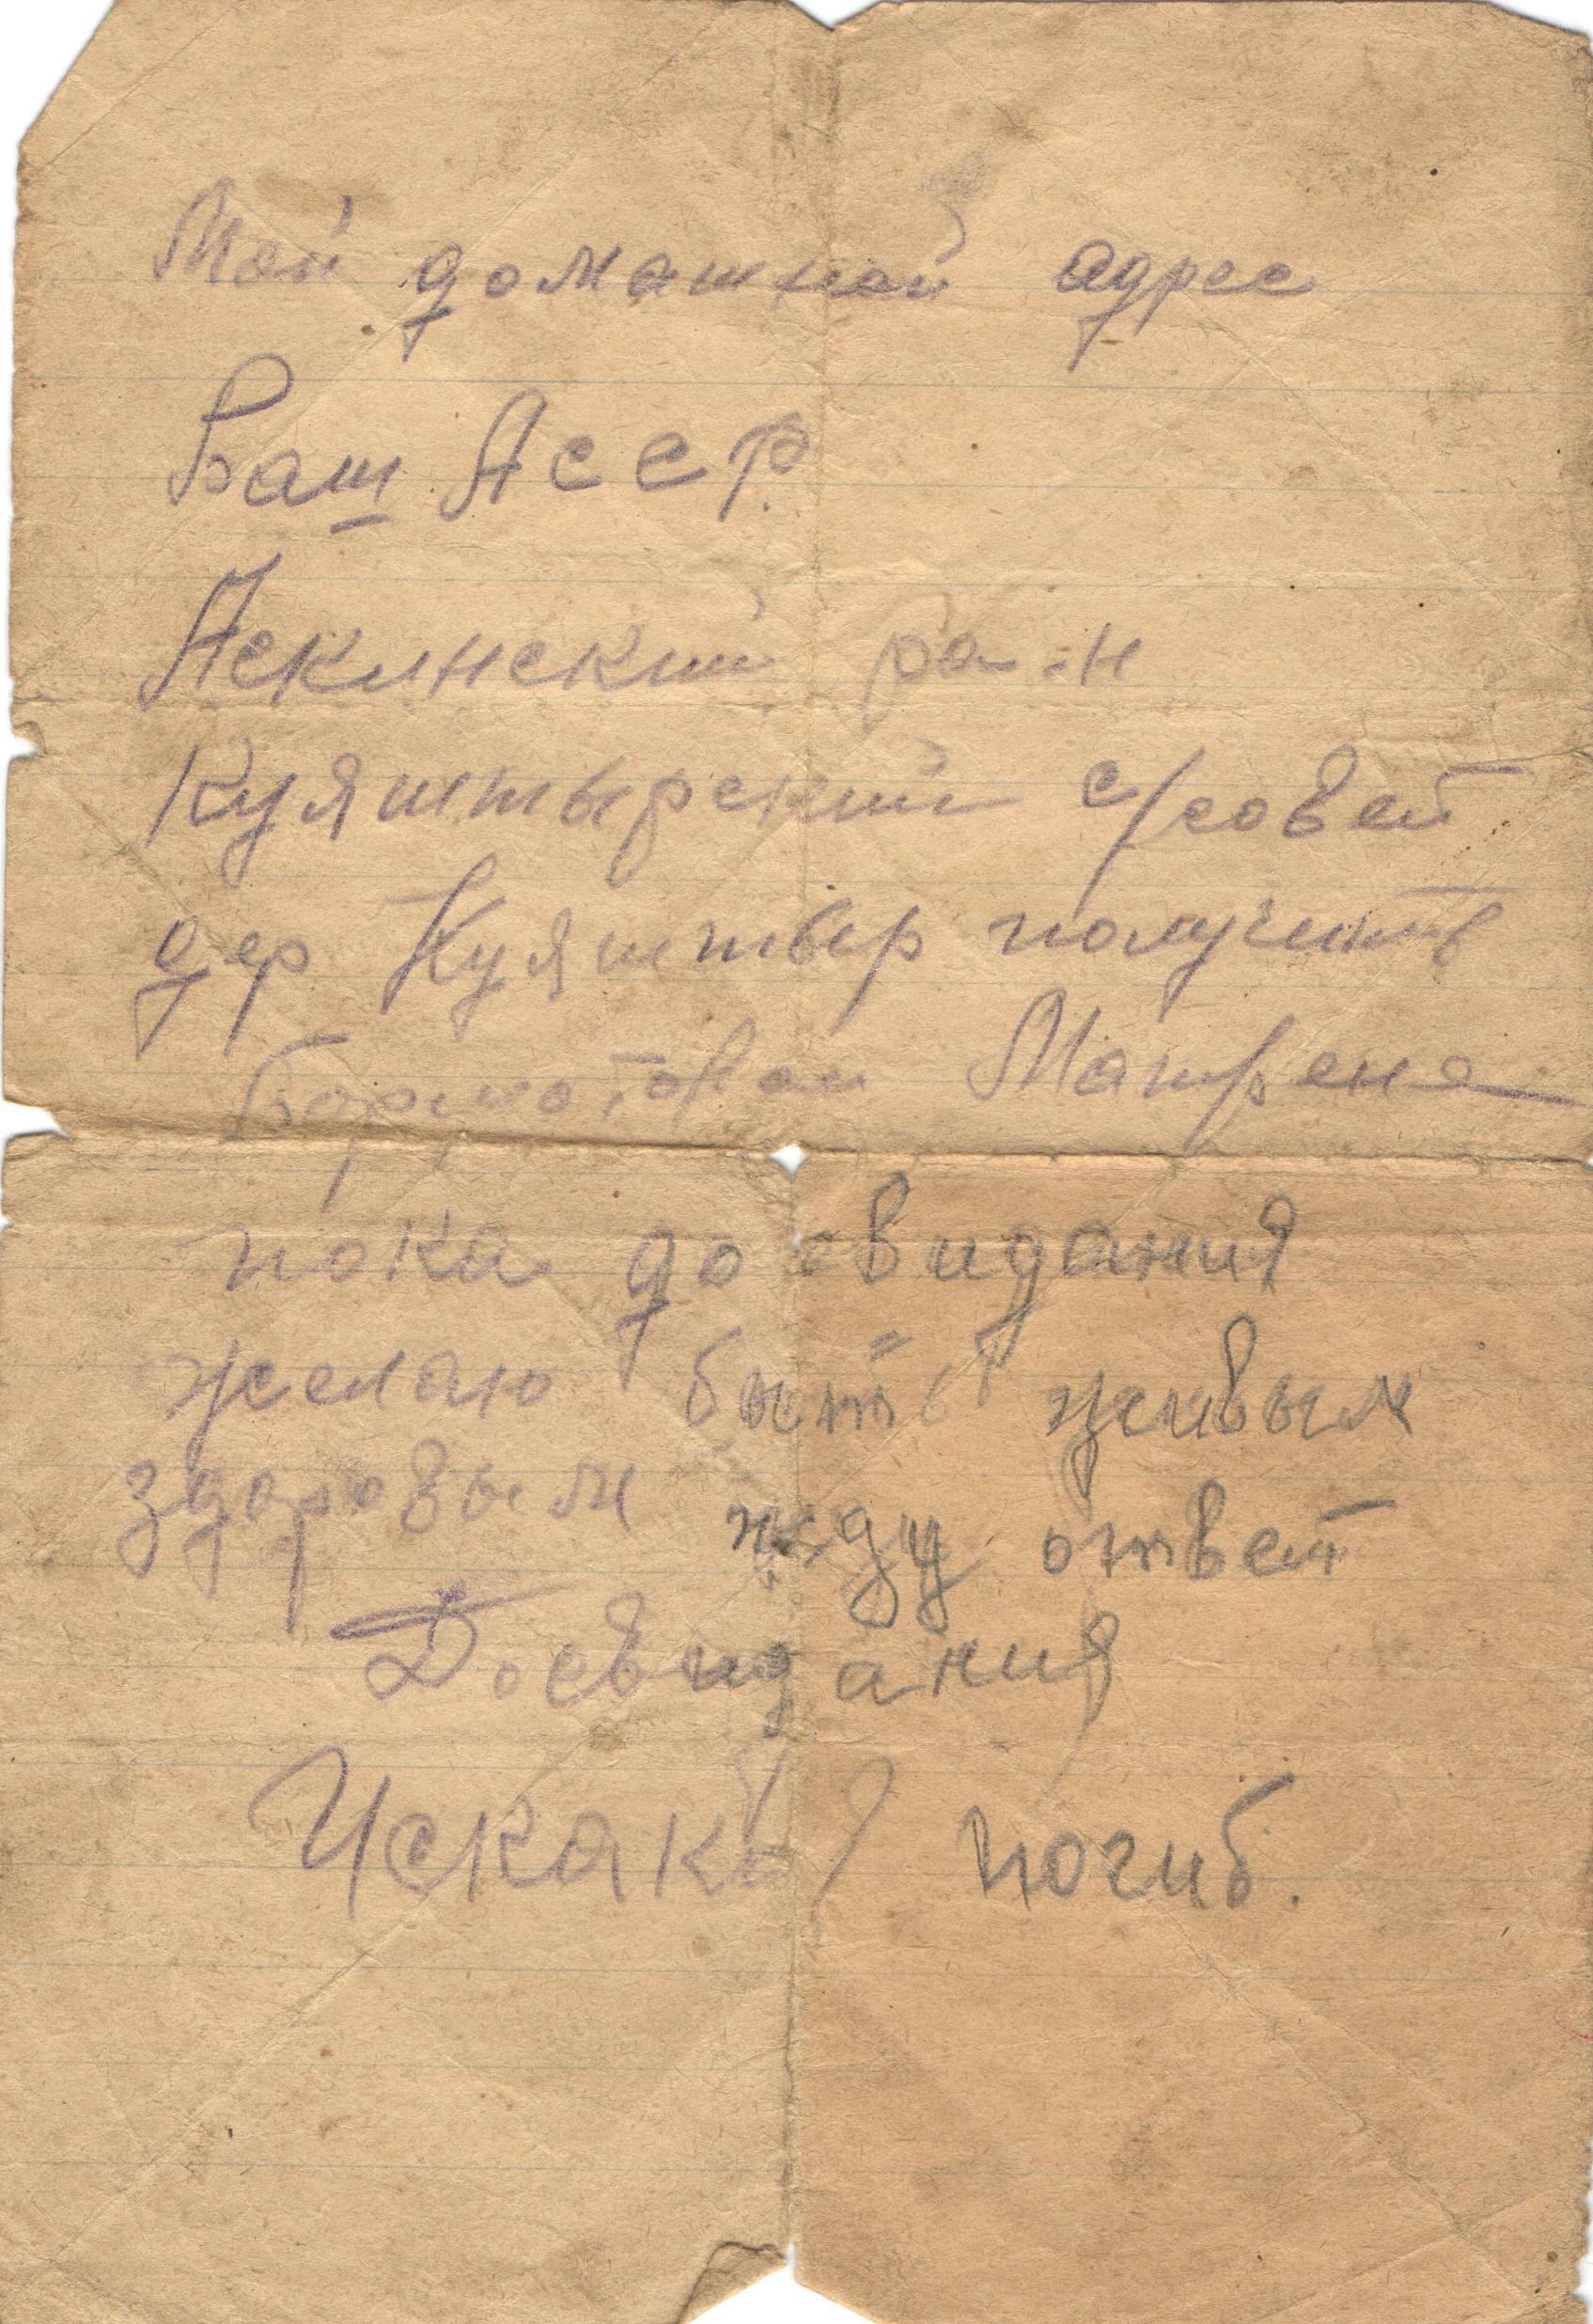 Мой домашной адрес
Баш АССР.
Аскинский ра-н
Куяштырский с/совет
дер Куяштыр получить
Матрена
пока до свидания
желаю быть живым
здоровым жду ответ
Досвидания
погиб.